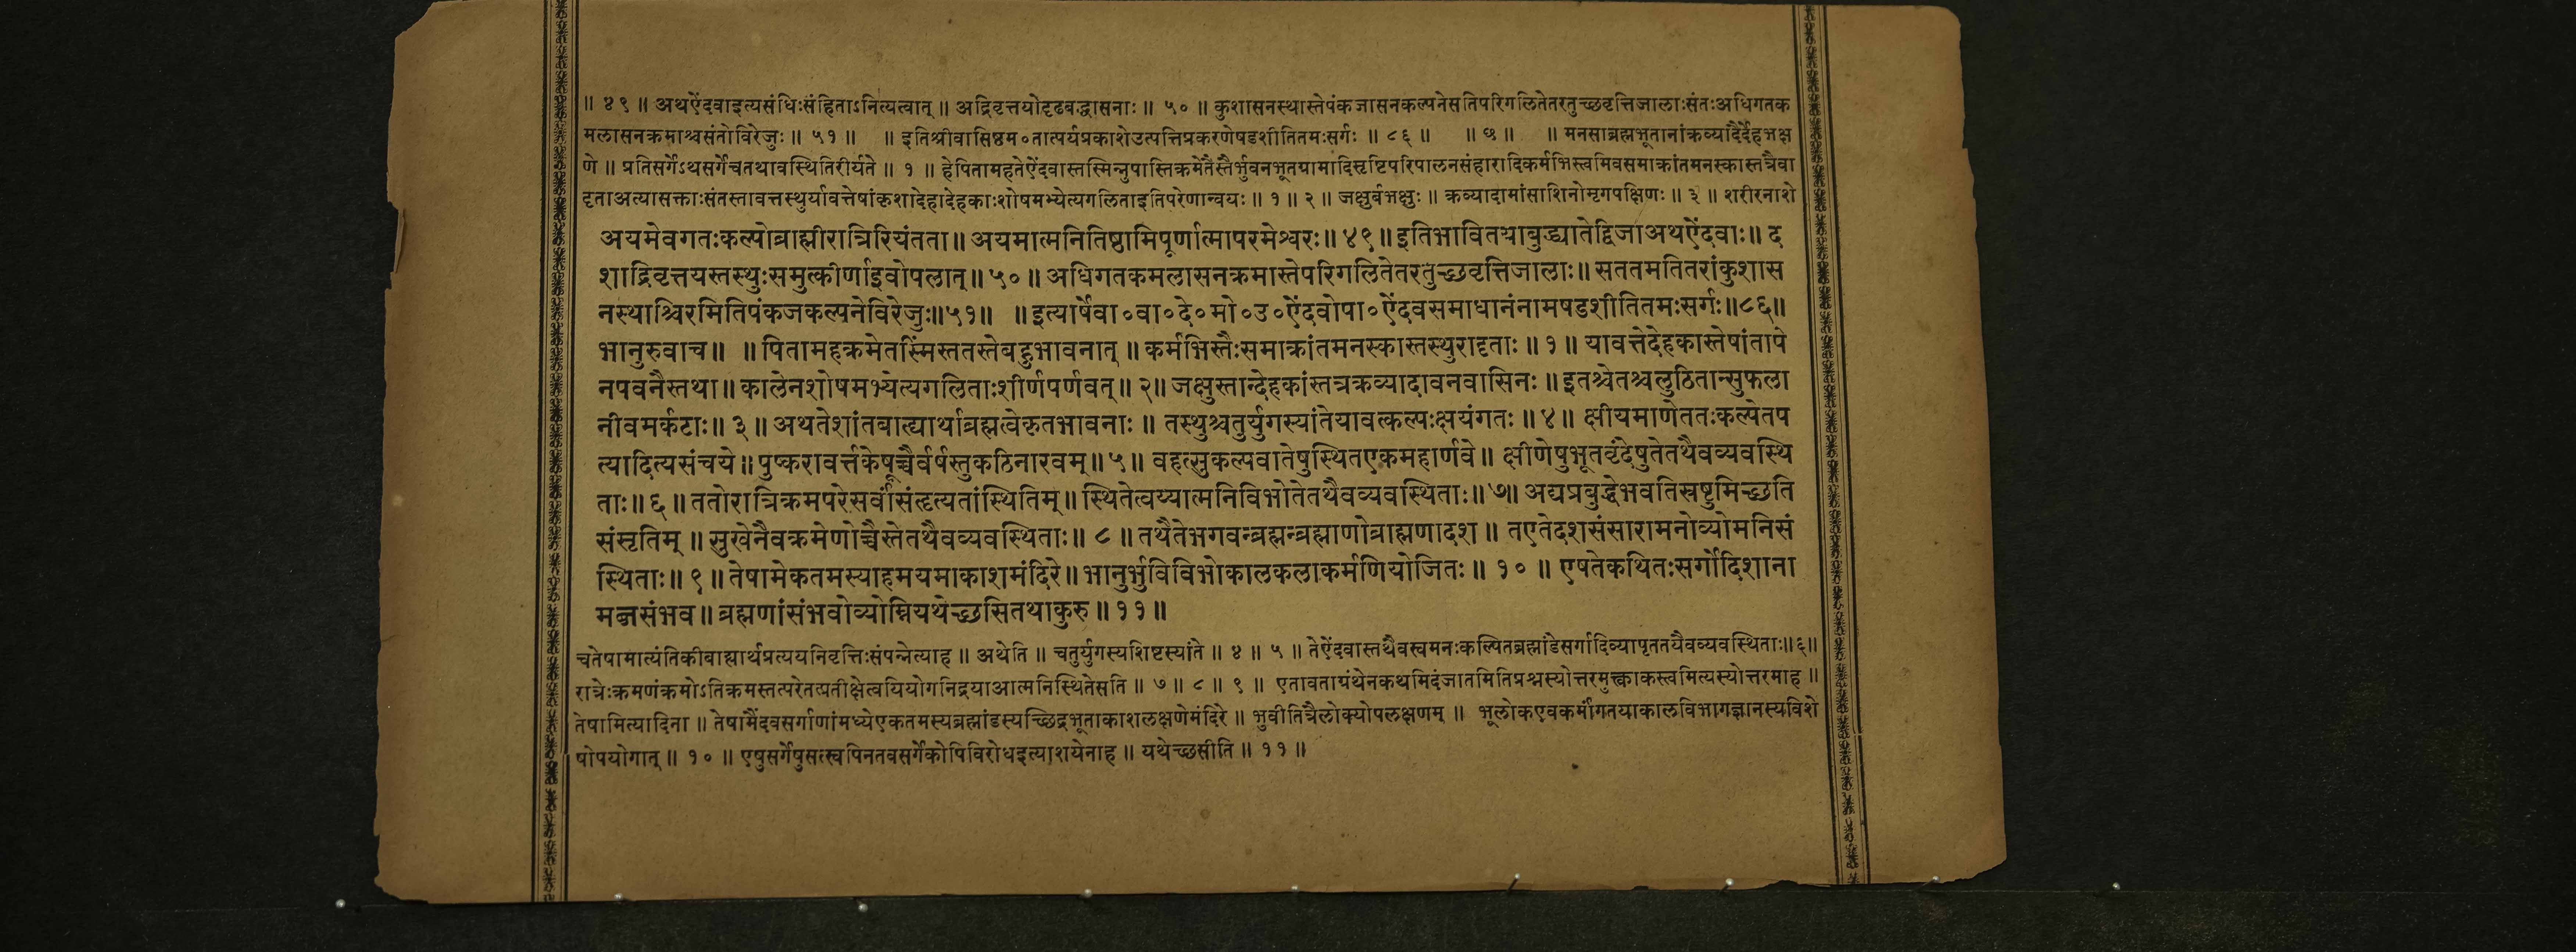 ॥ ४९ ॥ अथऐंदवाइत्यसंधिःसंहिताऽनित्यत्वात् ॥ अद्रिवृत्तयोदृढबद्धासनाः ॥ ५० ॥ कुशासनस्थास्तेपंकजासनकल्पनेसतिपरिगलितेतरतुच्छवृत्तिजालाःसंतःअधिगतक
मलासनक्रमाश्चसंतोविरेजुः ॥ ५१ ॥ ॥ इतिश्रीवासिष्ठम०तात्पर्यप्रकाशेउत्पत्तिप्रकरणेषडशीतितमःसर्गः ॥ ८६ ॥ ॥ छ ॥ ॥ मनसाब्रह्मभूतानांक्रव्यादैर्देहभक्ष
णे ॥ प्रतिसर्गेऽथसर्गेचतथावस्थितिरीर्यते ॥ १ ॥ हेपितामहतेऐंदवास्तस्मिन्नुपास्तिक्रमेतैस्तैर्भुवनभूतग्रामादिसृष्टिपरिपालनसंहारादिकर्मभिस्त्वमिवसमाक्रांतमनस्कास्तत्रैवा
दृताअत्यासक्ताःसंतस्तावत्तस्थुर्यावत्तेषांकृशादेहादेहकाःशोषमभ्येत्यगलिताइतिपरेणान्वयः ॥ १ ॥ २ ॥ जक्षुर्बभक्षुः ॥ क्रव्यादामांसाशिनोमृगपक्षिणः ॥ ३ ॥ शरीरनाशे
अयमेवगतःकल्पोब्राह्मीरात्रिरियंतता ॥ अयमात्मनितिष्ठामिपूर्णात्मापरमेश्वरः ॥ ४९ ॥ इतिभावितयाबुद्ध्यातेद्विजाअथऐंदवाः ॥ द
शाद्रिवृत्तयस्तस्थुःसमुत्कीर्णाइवोपलात् ॥ ५० ॥ अधिगतकमलासनक्रमास्तेपरिगलितेतरतुच्छवृत्तिजालाः ॥ सततमतितरांकुशास
नस्थाश्चिरमितिपंकजकल्पनेविरेजुः ॥ ५१ ॥ ॥ इत्यार्षेवा०वा०दे०मो०उ०ऐंदवोपा०ऐंदवसमाधानंनामषडशीतितमःसर्गः ॥ ८६ ॥
भानुरुवाच ॥ ॥ पितामहक्रमेतस्मिंस्ततस्तेबहुभावनात् ॥ कर्मभिस्तैःसमाक्रांतमनस्कास्तस्थुरादृताः ॥ १ ॥ यावत्तेदेहकास्तेषांतापे
नपवनैस्तथा ॥ कालेनशोषमभ्येत्यगलिताःशीर्णपर्णवत् ॥ २ ॥ जक्षुस्तान्देहकांस्तत्रक्रव्यादावनवासिनः ॥ इतश्चेतश्चलुठितान्सुफला
नीवमर्कटाः ॥ ३ ॥ अथतेशांतबाह्यार्थाब्रह्मत्वेकृतभावनाः ॥ तस्थुश्चतुर्युगस्यांतेयावत्कल्पःक्षयंगतः ॥ ४ ॥ क्षीयमाणेततःकल्पेतप
त्यादित्यसंचये ॥ पुष्करावर्त्तकेषूच्चैर्वर्षत्सुकठिनारवम् ॥ ५ ॥ वहत्सुकल्पवातेषुस्थितएकमहार्णवे ॥ क्षीणेषुभूतवृंदेषुतेतथैवव्यवस्थि
ताः ॥ ६ ॥ ततोरात्रिक्रमपरेसर्वांसंहृत्यतांस्थितिम् ॥ स्थितेत्वय्यात्मनिविभोतेतथैवव्यवस्थिताः ॥ ७ ॥ अद्यप्रबुद्धेभवतिस्रष्टुमिच्छति
संसृतिम् ॥ सुखेनैवक्रमेणोच्चैस्तेतथैवव्यवस्थिताः ॥ ८ ॥ तथैतेभगवन्ब्रह्मन्ब्रह्माणोब्राह्मणादश ॥ तएतेदशसंसारामनोव्योमनिसं
स्थिताः ॥ ९ ॥ तेषामेकतमस्याहमयमाकाशमंदिरे ॥ भानुर्भुविविभोकालकलाकर्मणियोजितः ॥ १० ॥ एषतेकथितःसर्गोदिशाना
मब्जसंभव ॥ ब्रह्मणांसंभवोव्योम्नियथेच्छसितथाकुरु ॥ ११ ॥
चतेषामात्यंतिकीबाह्यार्थप्रत्ययनिवृत्तिःसंपन्नेत्याह ॥ अथेति ॥ चतुर्युगस्यशिष्टस्यांते ॥ ४ ॥ ५ ॥ तेऐंदवास्तथैवस्वमनःकल्पितब्रह्मांडेसर्गादिव्यापृततयैवव्यवस्थिताः ॥ ६ ॥
रात्रेःक्रमणंक्रमोऽतिक्रमस्तत्परेतत्प्रतीक्षेत्वयियोगनिद्रयाआत्मनिस्थितेसति ॥ ७ ॥ ८ ॥ ९ ॥ एतावताग्रंथेनकथमिदंजातमितिप्रश्नस्योत्तरमुक्त्वाकस्त्वमित्यस्योत्तरमाह ॥
तेषामित्यादिना ॥ तेषामैंदवसर्गाणांमध्येएकतमस्यब्रह्मांडस्यच्छिद्रभूताकाशलक्षणेमंदिरे ॥ भुवीतित्रैलोक्योपलक्षणम् ॥ भूलोकएवकर्मांगतयाकालविभागज्ञानस्यविशे
षोपयोगात् ॥ १० ॥ एषुसर्गेषुसत्स्वपिनतवसर्गेकोपिविरोधइत्याशयेनाह ॥ यथेच्छसीति ॥ ११ ॥